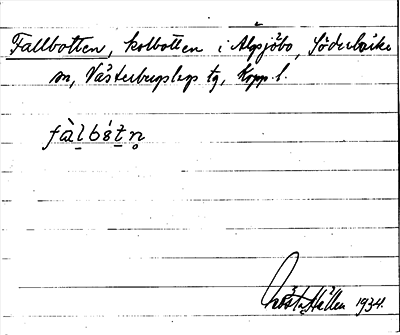 Fallbotten, kolbotten i Älgsjöbo, Söderbärke
sn, Västerbergslags tg, Kopp. l.
fàlbótn̥
Hållén 1934.